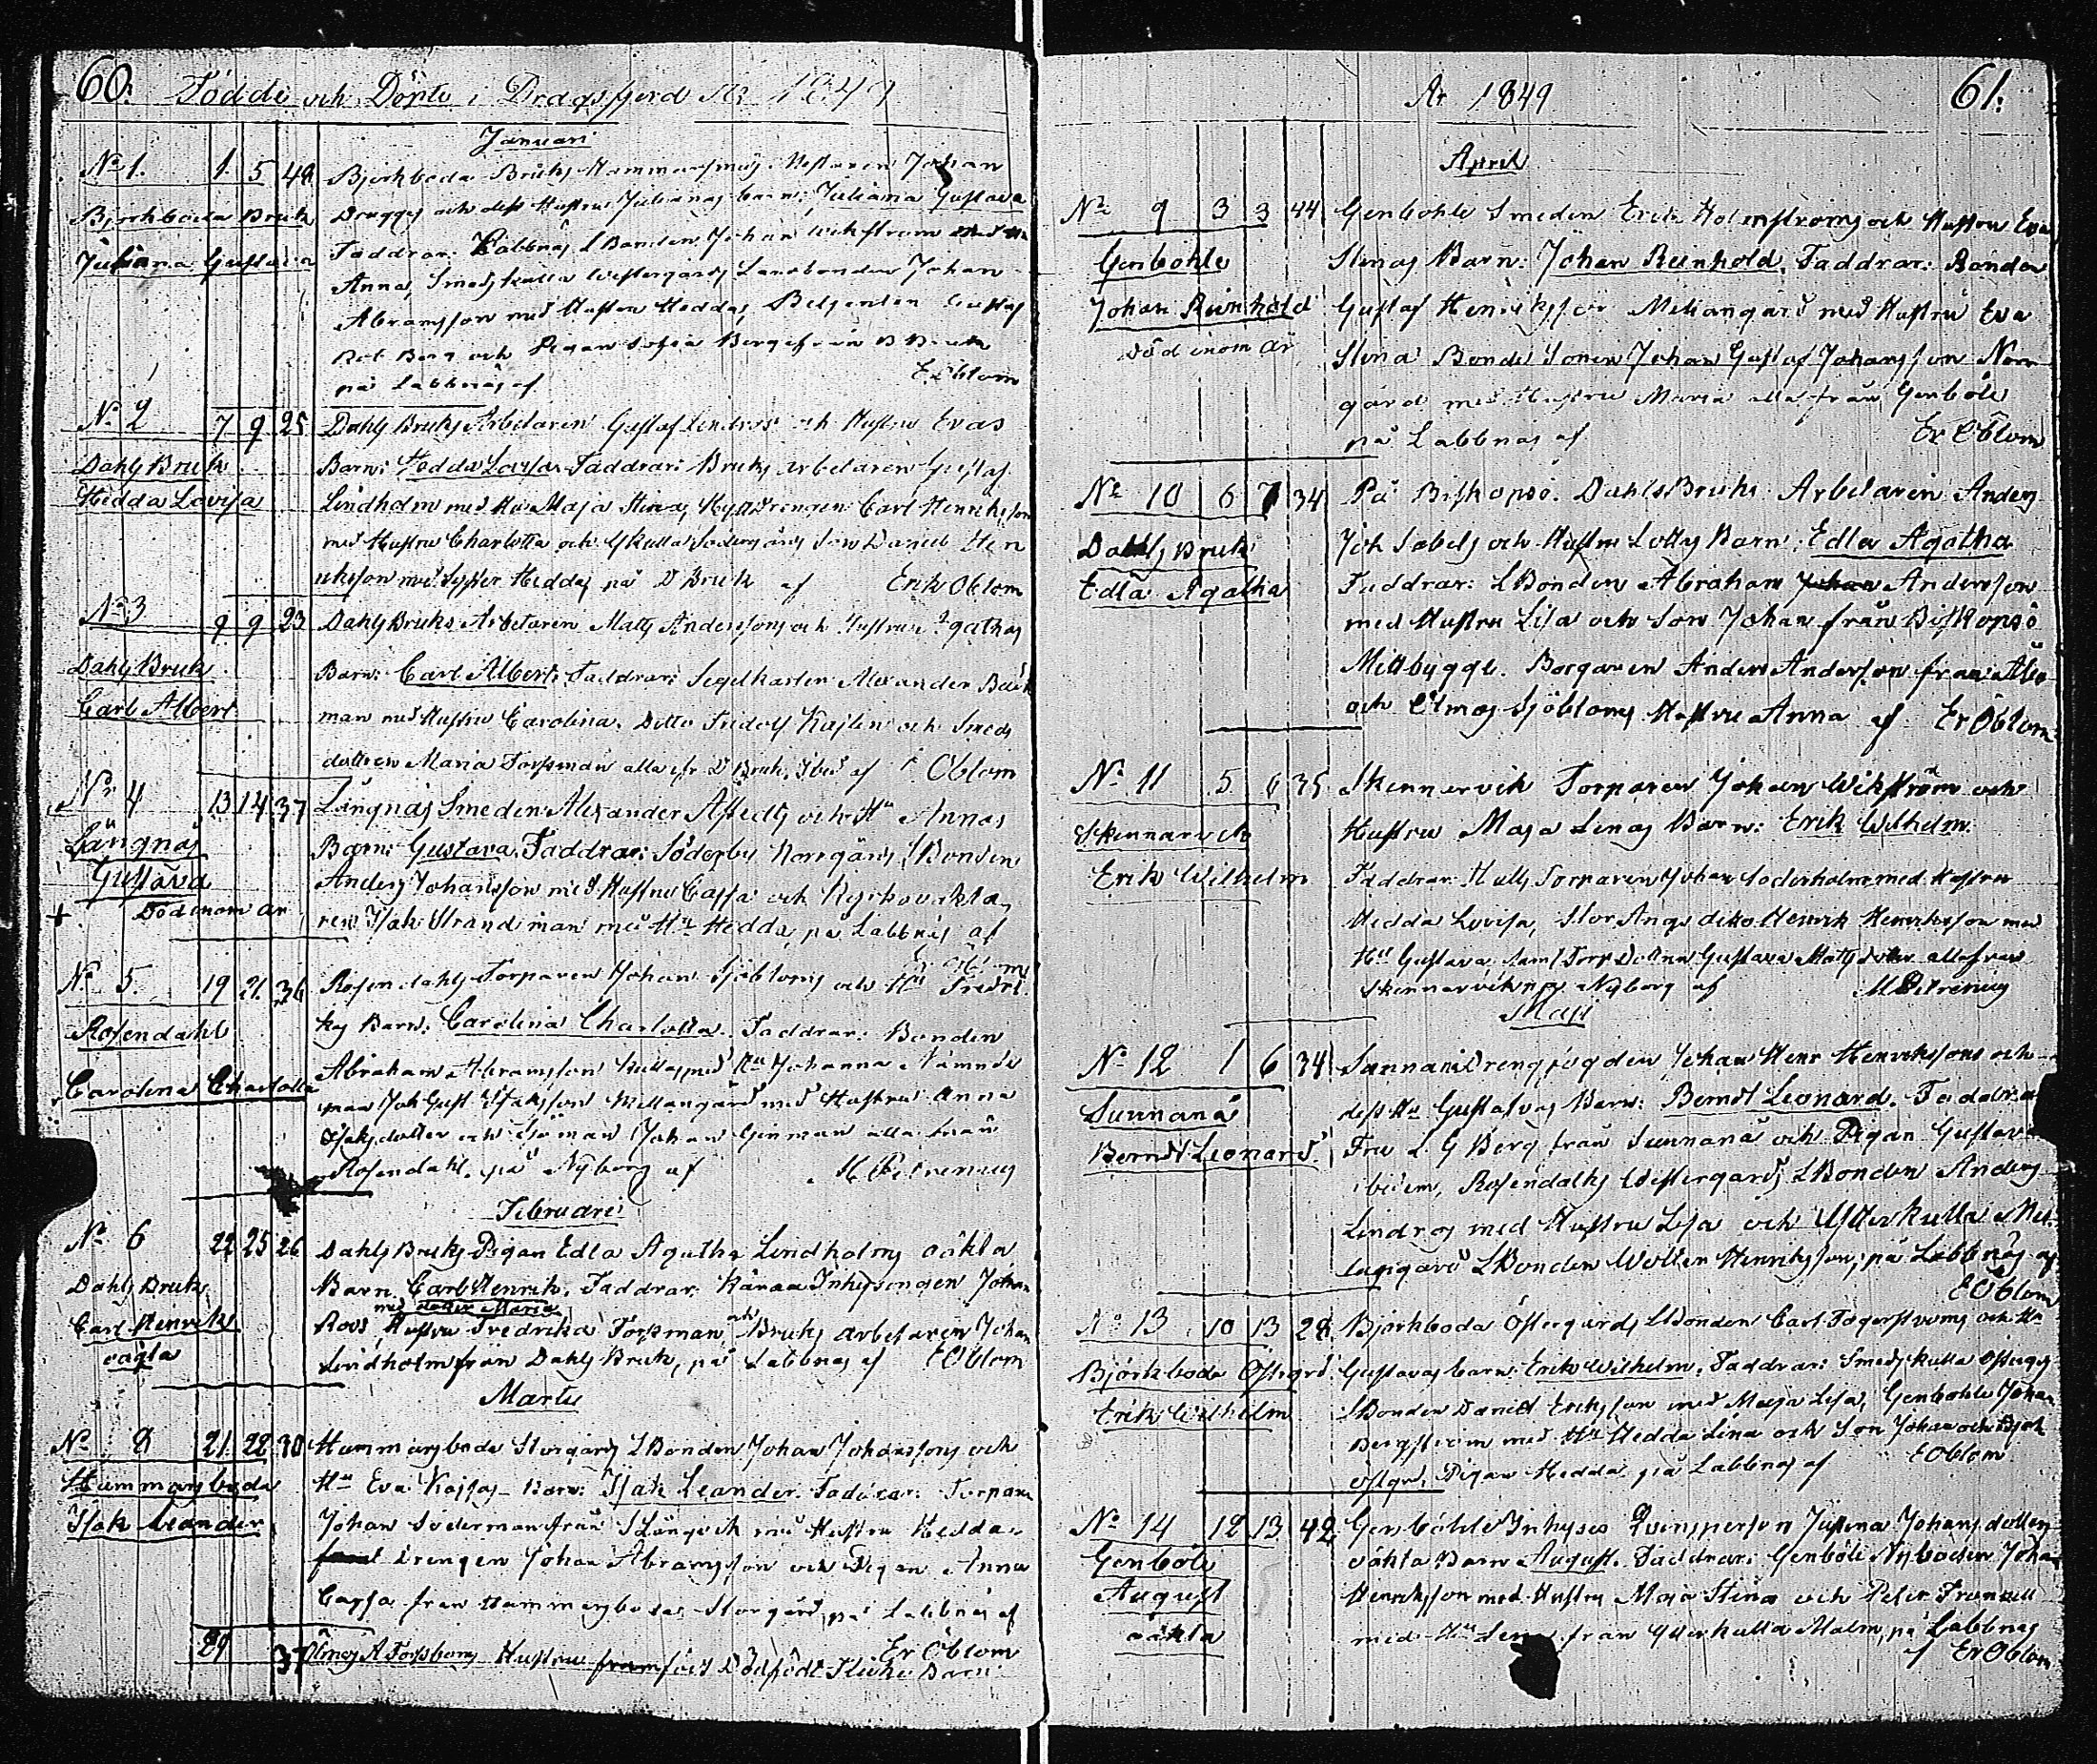 60. Födde och Döpte i Dragsfjerd År 1849
Januari
No 1. 1 5 48 Björkboda Bruks Hammarsmeds Mestaren Johan
Björkboda Bruk Draggs och dess Hustru Julianas barn: Juliana Gustava
Juliana Gustava Faddrar: Labbnäs LBonden Johan Wikström med Hu
Anna, Smedskulla Westergårds Landbonden Johan
Abramsson med Hustru Hedda, Betjenten Gustaf
Rob Berg och Pigan Sofia Berg från B Bruk
på Labbnäs af Er Öblom
No 2 7 9 25 Dahls Bruks Arbetaren Gustaf Lindros och Hustru Evas
Dahls Bruk Barn: Hedda Lovisa Faddrar: Bruks arbetaren Gustaf
Hedda Lovisa Lindholm med Hu Maja Stina, Hyttdrengen Carl Henriksson
med Hustru Charlotta och Skulla Södergårds Son Daniel Hen
riksson med Syster Hedda, på D Bruk af Erik Öblom
No 3 9 9 23 Dahls Bruks Arbetaren Matts Anderssons och Hustru Agathas
Dahls Bruk Barn: Carl Albert; Faddrar: Segelkarlen Alexander Back
Carl Albert man med Hustru Carolina. Ditto Fridolf Kajlen och Smeds
dottren Maria Forssman alla fr D Bruk, Ibid af E Öblom
No 4 13 14 37 Långnäs Smeden Alexander Alstedts och Hu Annas
Långnäs Barn: Gustava. Faddrar: Söderby Norrgårds LBonden
Gustava Anders Johansson med Hustru Cajsa och Kyrkovakta
+ Död inom år ren Isak Strandman med Hu Hedda, på Labbnäs af
Er Öblom
No 5. 19 21 36 Rosendahls Torparen Johan Sjöbloms och Hu Fredri
Rosendahl kas Barn: Carolina Charlotta. Faddrar: Bonden
Carolina Charlotta Abraham Abramsson Kulla, med Hu Johanna Nämnde
man Joh Gust Isaksson Mellangård med Hustru Anna
Isaksdotter och Sjöman Johan Ginman alla från
Rosendahl, på Nyborg af M Petrenius
Februari
No 6 22 25 26 Dahls Bruks Pigan Edla Agatha Lindholms oäkta
Dahls Bruk Barn Carl Henrik. Faddrar: Kärraa Inhysingen Johan
Carl Henrik med dotter Maria
oägta Roos Hustru Fredrika Forssman, och Bruks arbetaren Johan
Lindholm från Dahls Bruk, på Labbnäs af E Öblom
Martii
No 8 21 22 30 Hammarsboda Storgårds LBonden Johan Johanssons och
Hammarsboda Hu Eva Kajsas Barn: Isak Leander. Faddrar: Torparen
Isak Leander Johan Söderman från S Långvik med Hustru Hedda
samt Drengen Johan Abramsson och Pigan Anna
Cajsa från Hammarsboda Storgård, på Labbnäs af
Er Öblom
29 37 Ölmos A Forsbergs Hustru framfödt Dödfödt Flicke Barn

År 1849 61.
April
No 9 3 3 44 Genböhle Smeden Erik Holmströms och Hustru Eva
Genböhle Stinas Barn: Johan Reinhold. Faddrar: Bonden
Johan Reinhold Gustaf Henriksson Mellangård med Hustru Eva
Död inom år Stina Bonde Sonen Johan Gustaf Johansson Norr
gård med Hustru Maria alla från Genböle
på Labbnäs af Er Öblom
No 10 6 7 34 På Biskopsö. Dahls Bruks Arbetaren Anders
Dahls Bruk Joh Sabels och Hustru Lottas Barn: Edla Agatha
Edla Agatha Faddrar: LBonden Abraham Johan Andersson
med Hustru Lisa och Son Johan från Biskopsö
Mittbygge. Borgaren Anders Andersson från Åbo
och Ölmos Sjöbloms Hustru Anna af Er Öblom
No 11 5 6 35 Skennarvik Torparen Johan Wikström och
Skinnarvik Hustru Maja Lenas Barn: Erik Wilhelm.
Erik Wilhelm Faddrar: Hults Torparen Johan Söderholm med Hustru
Hedda Lovisa, Stor Ängs dito Henrik Henriksson med
Hu Gustava samt Torp Dottren Gustava Matts dotter alla från
Skennarvik på Nyborg af M Petrenius
Maji
No 12 1 6 34 Sunnanå Drengfogden Johan Henr Henrikssons och
Sunnanå dess Hu Gustafvas Barn: Berndt Leonard. Faddrar
Berndt Leonard. Fru L G Berg från Sunnanå och Pigan Gustava
ibidem, Rosendahls Westergårds LBonden Anders
Lindros med Hustru Lisa och Ytterkulla Mel
langård LBonden Wolter Henriksson, på Labbnäs af
E Öblom
No 13 10 13 28 Björkboda Östergårds LBonden Carl Fagerströms och Hu
Björkboda Östergrd. Gustavas barn: Erik Wilhelm. Faddrar: Smedskulla Östergs
Erik Wilhelm LBonden Daniel Eriksson med Maja Lisa, Genböhle Johan
Bergström med Hu Hedda Lena och Son Johan och Björk
Östgrd. Pigan Hedda på Labbnäs af E Öblom
No 14 12 13 42 Genböhle Inhyses Qvinsperson Justina Johansdotters
Genböle oäkta Barn August. Faddrar: Genböle Nybonden Johan
August Henriksson med Hustru Maja Stina och Peter Trunsell
oäkta med Hu Lena från Ytterkulla Malm, på Labbnäs
af Er Öblom